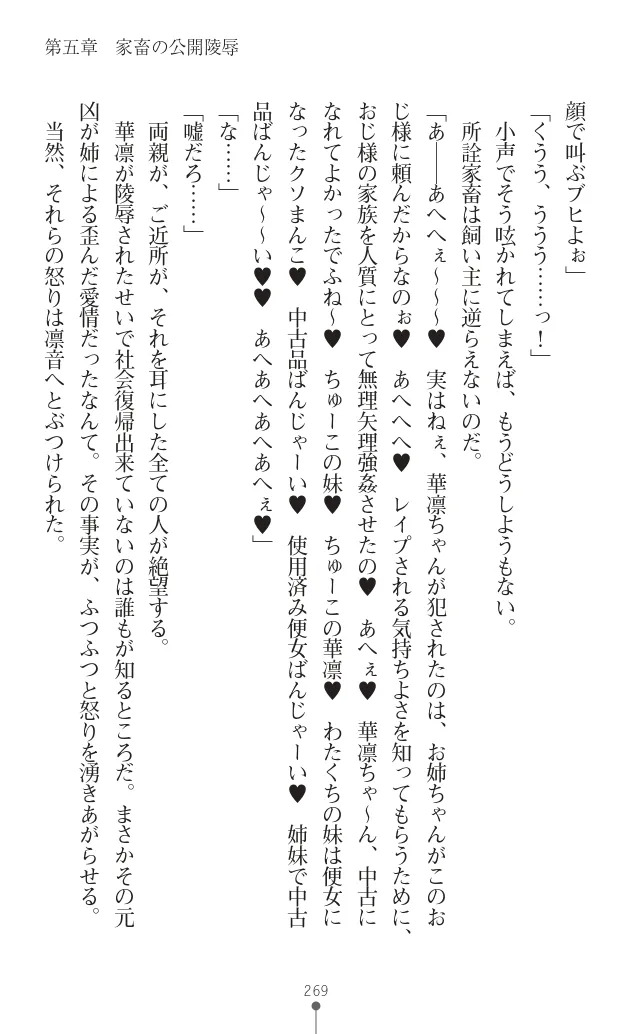 第五章　家畜の公開陵辱
顔で叫ぶブヒよぉ」
「くうう、ううう……っ！」
　小声でそう呟かれてしまえば、もうどうしようもない。
　所詮家畜は飼い主に逆らえないのだ。
「あ――あへへぇ～～～♥　実はねぇ、華凛ちゃんが犯されたのは、お姉ちゃんがこのお
じ様に頼んだからなのぉ♥　あへへへ♥　レイプされる気持ちよさを知ってもらうために、
おじ様の家族を人質にとって無理矢理強姦させたの♥　あへぇ♥　華凛ちゃ～ん、中古に
なれてよかったでふね～♥　ちゅーこの妹♥　ちゅーこの華凛♥　わたくちの妹は便女に
なったクソまんこ♥　中古品ばんじゃーい♥　使用済み便女ばんじゃーい♥　姉妹で中古
品ばんじゃ～～い♥♥　あへあへあへあへぇ♥」
「な……」
「嘘だろ……」
　両親が、ご近所が、それを耳にした全ての人が絶望する。
　華凛が陵辱されたせいで社会復帰出来ていないのは誰もが知るところだ。まさかその元
凶が姉による歪んだ愛情だったなんて。その事実が、ふつふつと怒りを湧きあがらせる。
　当然、それらの怒りは凛音へとぶつけられた。
269